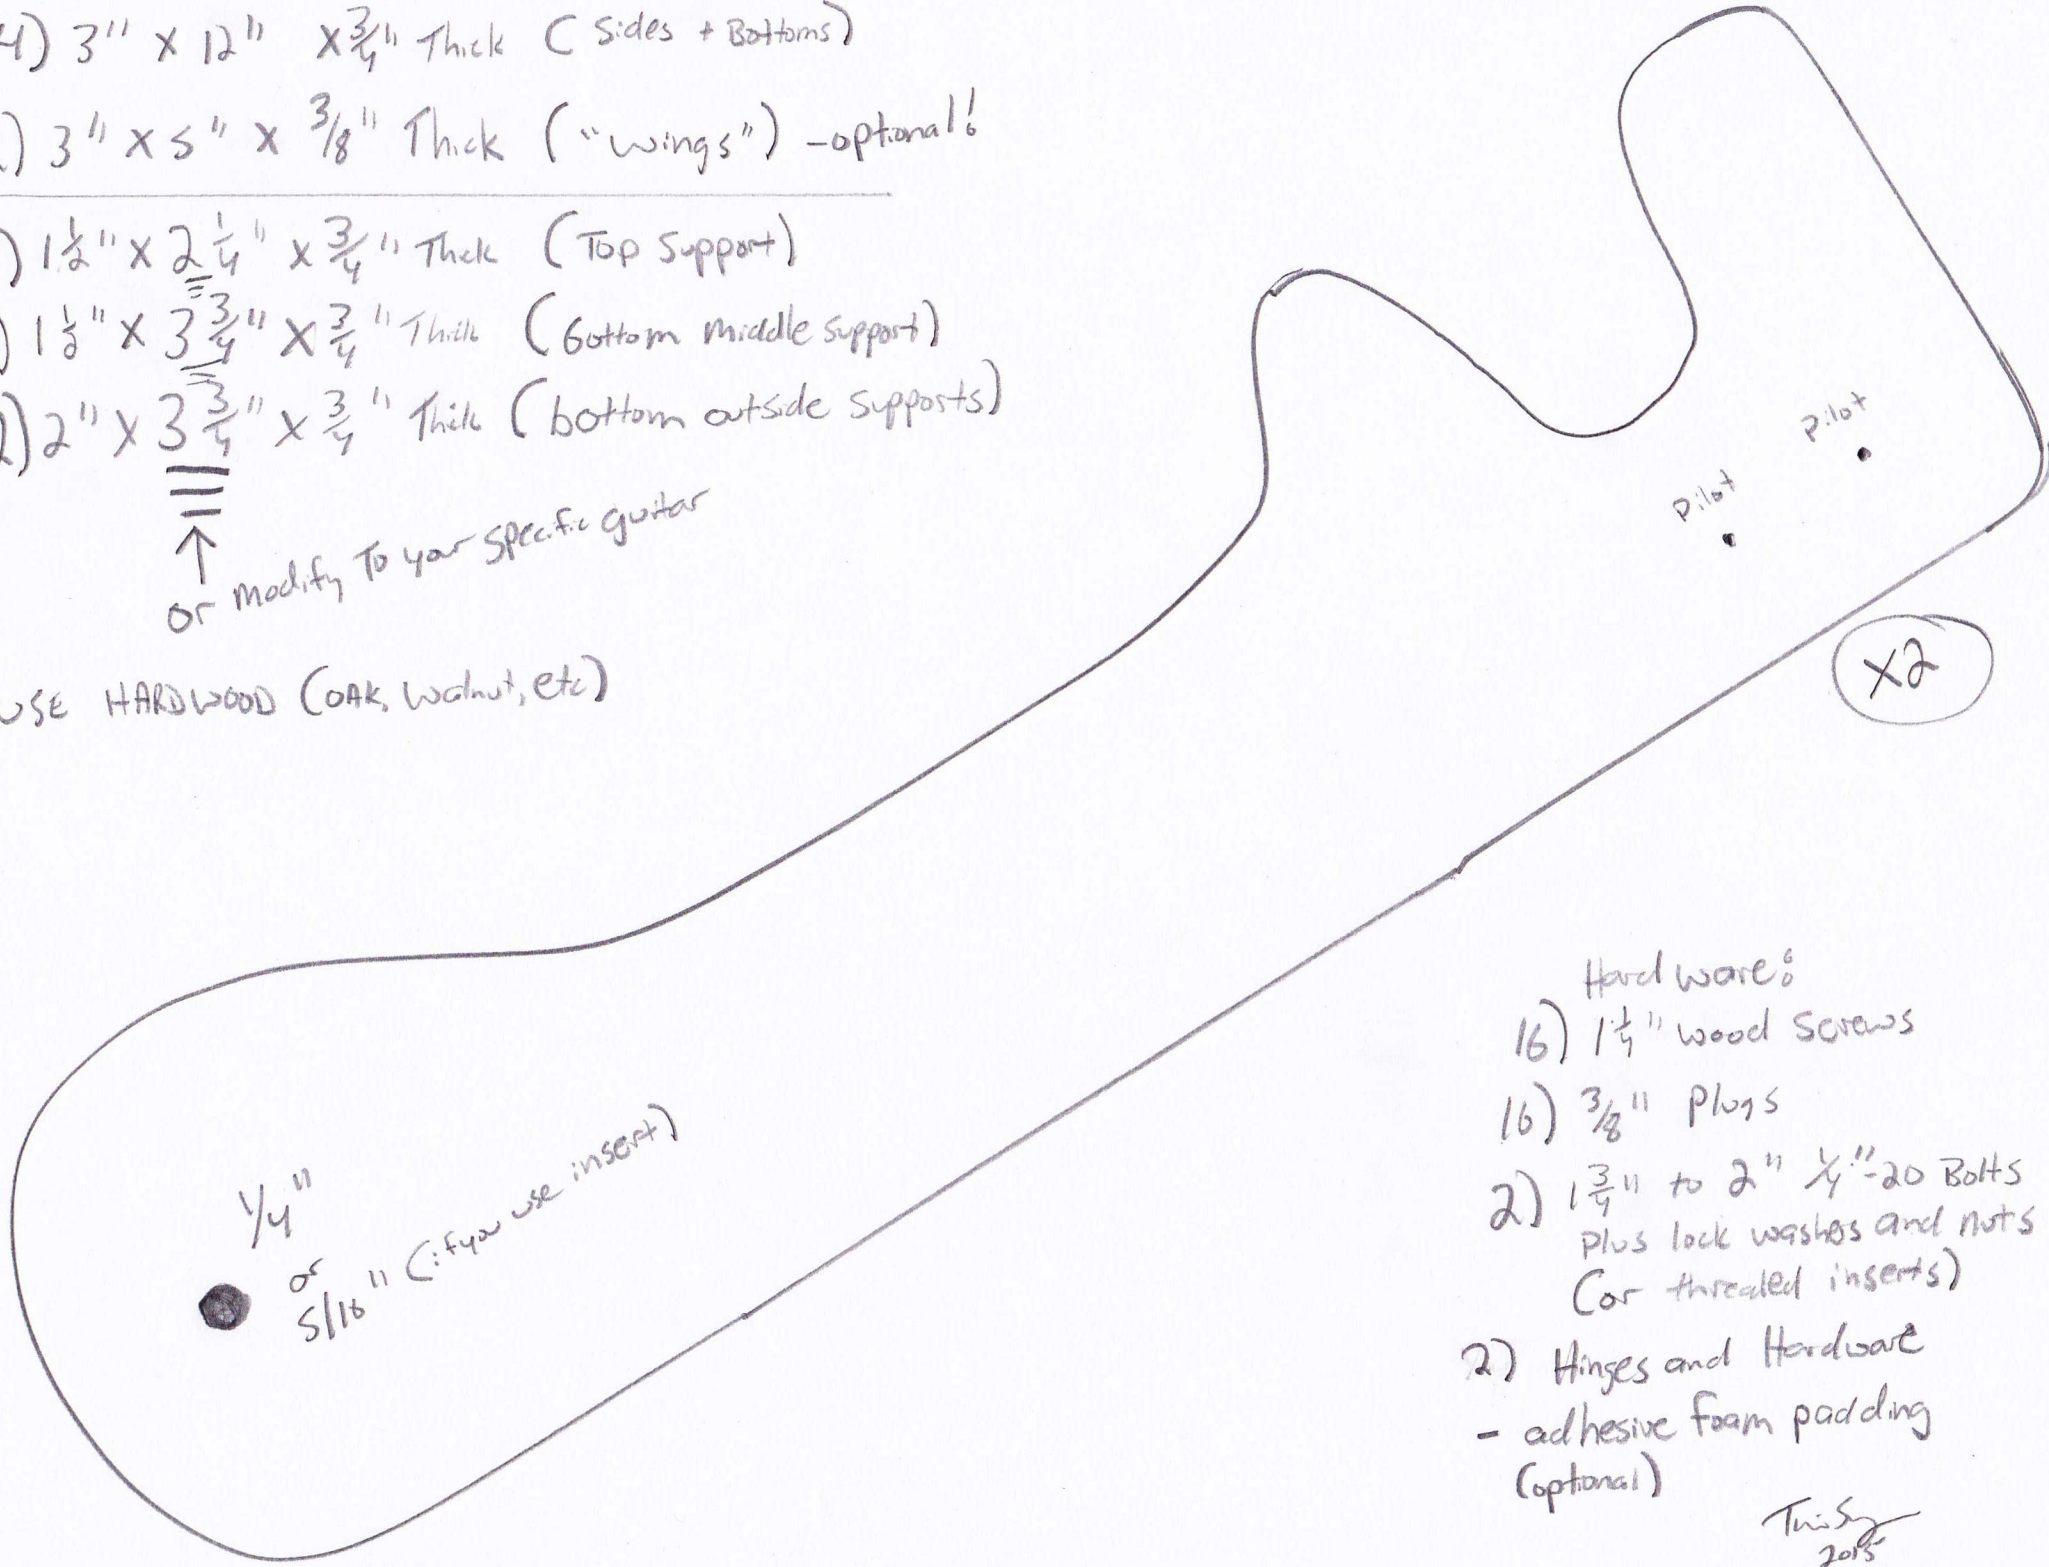 4) 3" X 12" X 3/4" Thick (Sides + Bottoms)
) 3" X 5" X 3/8" Thick ("wings") - optional!
) 1 1/2" X 2 1/4" X 3/4" Thick (Top Support)
) 1 1/2" X 3 3/4" X 3/4" Thick (bottom middle support)
2) 2" X 3 3/4" X 3/4" Thick (bottom outside supports)
or modify To your specific guitar
USE HARDWOOD (OAK, walnut, etc)
pilot
pilot
X2
1/4"
or
5/16" (if you use insert)
Hardware:
16) 1 1/4" wood screws
16) 3/8" plugs
2) 1 3/4" to 2" 1/4"-20 Bolts
plus lock washers and nuts
(or threaded inserts)
2) Hinges and Hardware
- adhesive foam padding
(optional)
2015